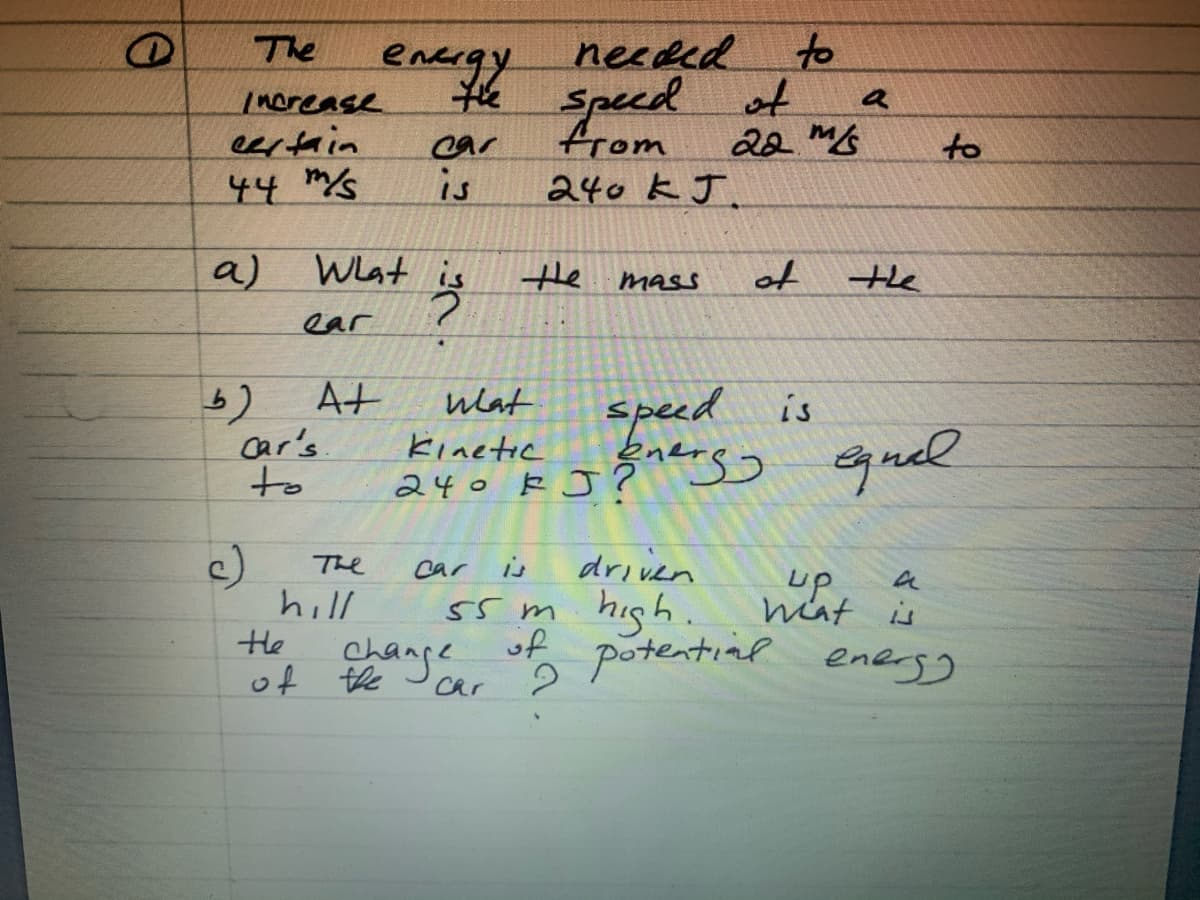 ① The energy needed to
increase the speed of a
certain car from 22 m/s to
44 m/s is 240 kJ.
a) What is the mass of the
car ?
b) At what speed is
car's kinetic energy equal
to 240 kJ?
c) The car is driven up a
hill 55 m high. What is
the change of potential energy
of the car ?